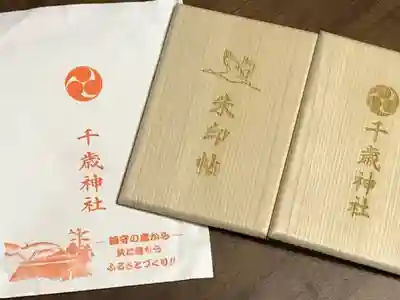 千歳神社
鎮守の森から
共に語ろう
ふるさとづくり!!
朱印帖
千歳神社